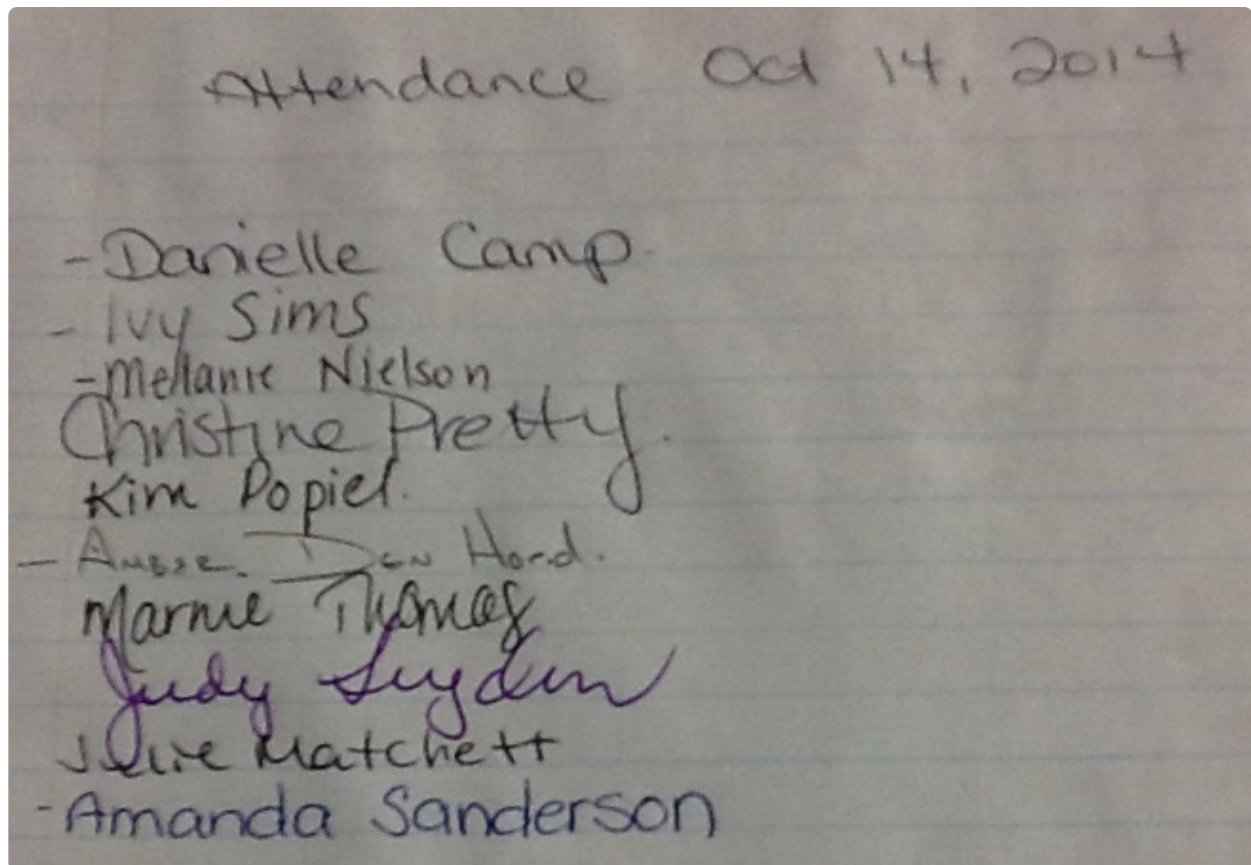 Attendance Oct 14, 2014
- Danielle Camp.
- Ivy Sims
- Mellanie Nielson
Christine Pretty.
Kim Popiel.
- Den Hord.
Marnie Thomas
Judy
Julie Matchett
- Amanda Sanderson